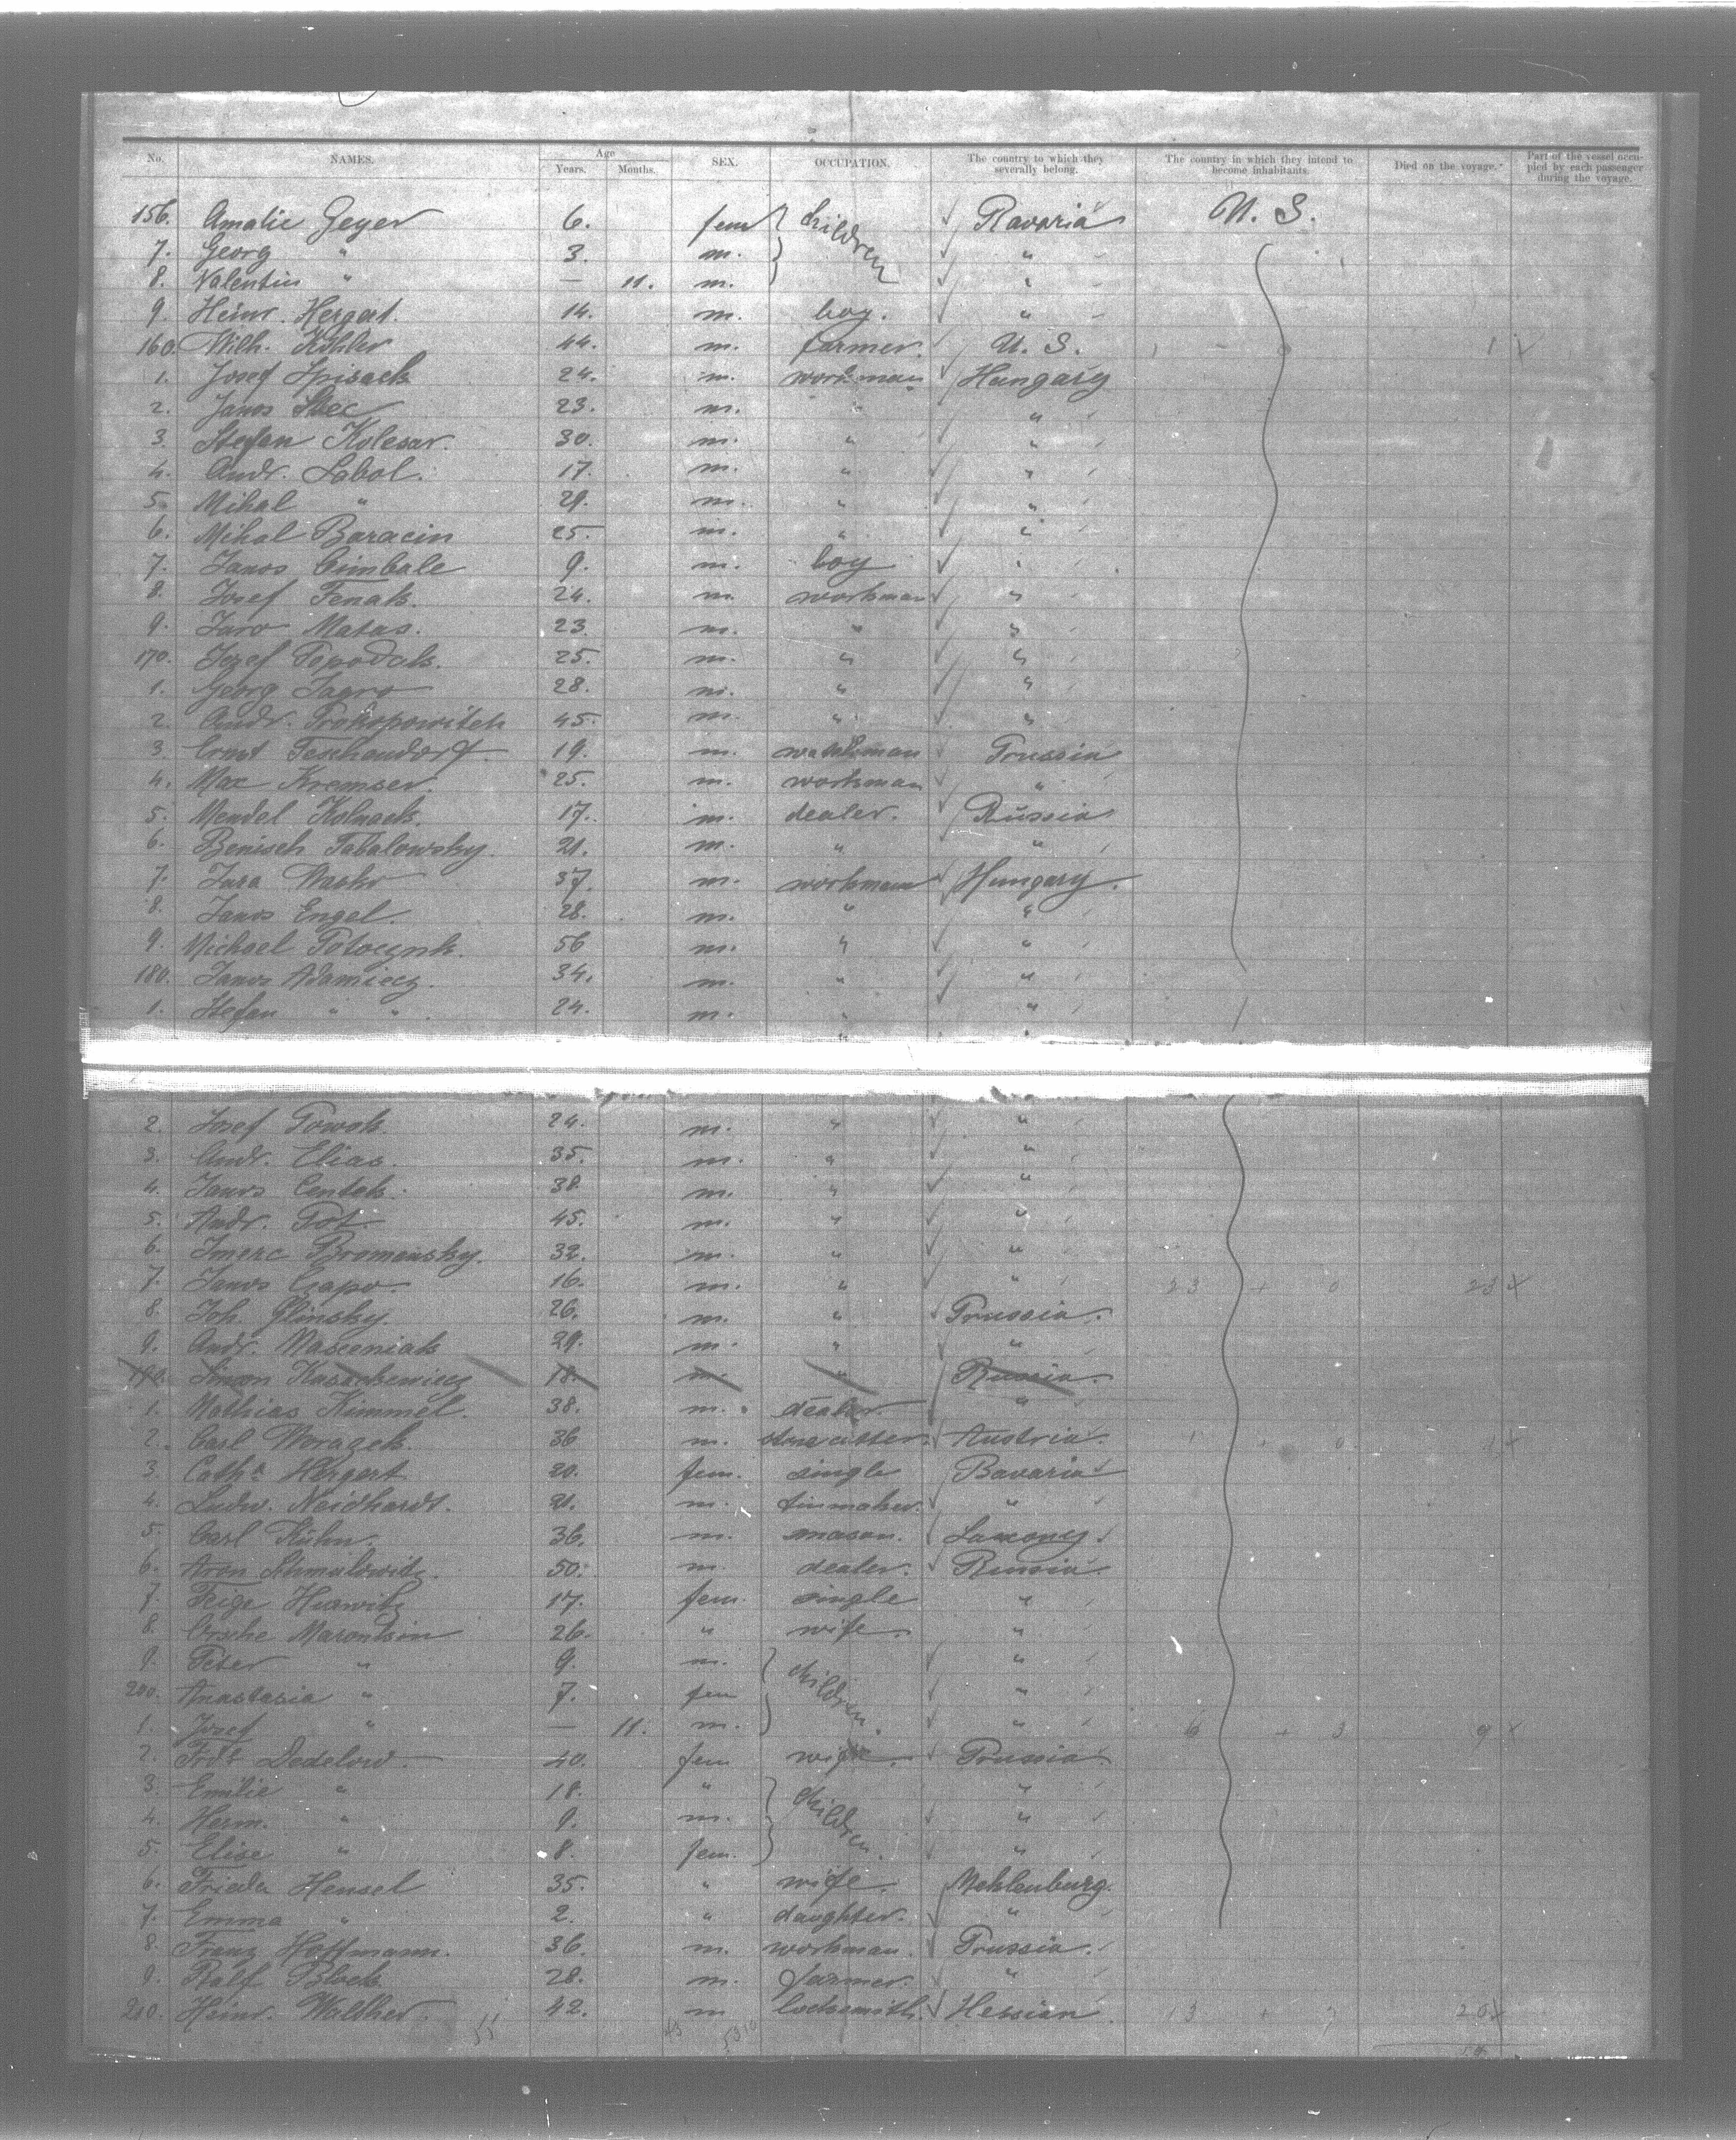 No. NAMES. Age Years. Months. SEX. OCCUPATION. The country to which they severally belong. The country in which they intend to become inhabitants. Died on the voyage. Part of the vessel occupied by each passenger during the voyage.
156. Amalie Geyer 6. fem children Bavaria U. S.
7. Georg " 3. m. "
8. Valentin " — 11. m. "
9. Heinr. Hergert. 14. m. boy. "
160. Wilh. Köhler 44. m. farmer. U. S. 1
1. Josef Spisack 24. m. workman Hungary
2. Janos 23. m. " "
3. Stefan Kolesar. 30. m. " "
4. Andr. Sabol. 17. m. " "
5. Mihal " 29. m. " "
6. Mihal Baracin 25. m. " "
7. Janos Cimbale 9. m. boy "
8. Josef Fenak. 24. m. workman "
9. Juro Matas. 23. m. " "
170. Jozef Popodak. 25. m. " "
1. Georg Jagro 28. m. " "
2. Andr. Prokopowitch 45. m. " "
3. Ernst Teschendorf 19. m. Prussia
4. Max Kremser. 25. m. workman "
5. Mendel Kolnack. 17. m. dealer. Russia
6. Benisch Tabalowsky. 21. m. " "
7. Jura Wasko 37. m. workman Hungary.
8. Janos Engel. 28. m. " "
9. Michael Potocynk. 56 m. " "
180. Janos Adamiecz. 34. m. " "
1. Stefan " " 24. m. " "
2. Josef Powok. 24. m. " "
3. Andr. Elias. 35. m. " "
4. Janos Centek. 38. m. " "
5. Andr. Tot. 45. m. " "
6. Imerc Bromensky. 32. m. " "
7. Janos Czapo. 16. m. " " 23 + 0 23 x
8. Joh. Glinsky. 26. m. " Prussia.
9. Andr. Masceniak 29. m. " "
190. Simon Kaschewiecz 18. m. " Russia.
1. Mathias Kimmel. 38. m. dealer. "
2. Carl Woragek. 36 m. stone cutter. Austria.
3. Cath. Hergert 20. fem. single Bavaria
4. Ludw. Neidhardt. 21. m. tinmaker. "
5. Carl Kühn. 36. m. mason. Saxony.
6. Aron Schmulowitz. 50. m. dealer. Russia.
7. Feige Hurwitz 17. fem. single "
8. Orsche Marontsin 26. " wife. "
9. Peter " 9. m. children. "
200. Anastasia " 7. fem "
1. Josef " — 11. m. " 6 + 3 9 x
2. Dedelow. 40. fem wife. Prussia
3. Emilie " 18. " children. "
4. Herm. " 9. m. "
5. Elise " 8. fem. "
6. Frieda Hensel 35. " wife. Meklenburg.
7. Emma " 2. " daughter. "
8. Franz Hoffmann. 36. m. workman. Prussia.
9. Ralf Block 28. m. farmer. "
210. Heinr. Walther. 42. m locksmith. Hessian.